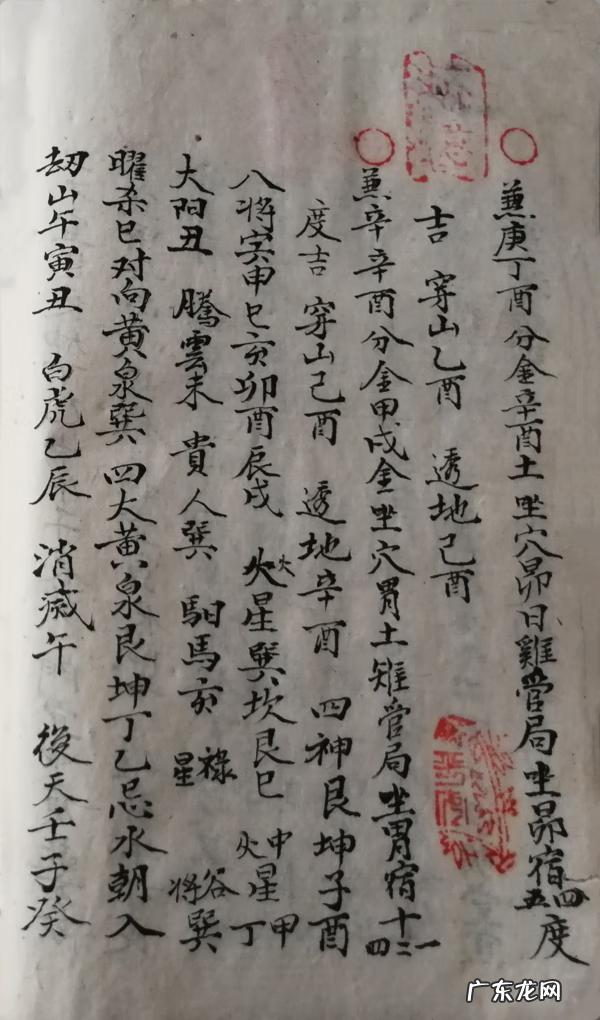 兼庚丁酉分金辛酉土坐穴昴日雞管局坐昴宿四五度
吉 穿山乙酉 透地己酉
兼辛辛酉分金甲戌金坐穴胃土雉管局坐胃宿十一二四
度吉 穿山己酉 透地辛酉 四神艮坤子酉
八將寅申巳亥卯酉辰戌 火星巽坎艮巳 中火星甲丁
太阳丑 騰雲未 貴人巽 馹馬亥 祿星 谷將巽
曜杀巳对向黄泉巽四大黄泉艮坤丁乙忌水朝入
劫山午寅丑 白虎乙辰 消滅午 後天壬子癸
广东龙网